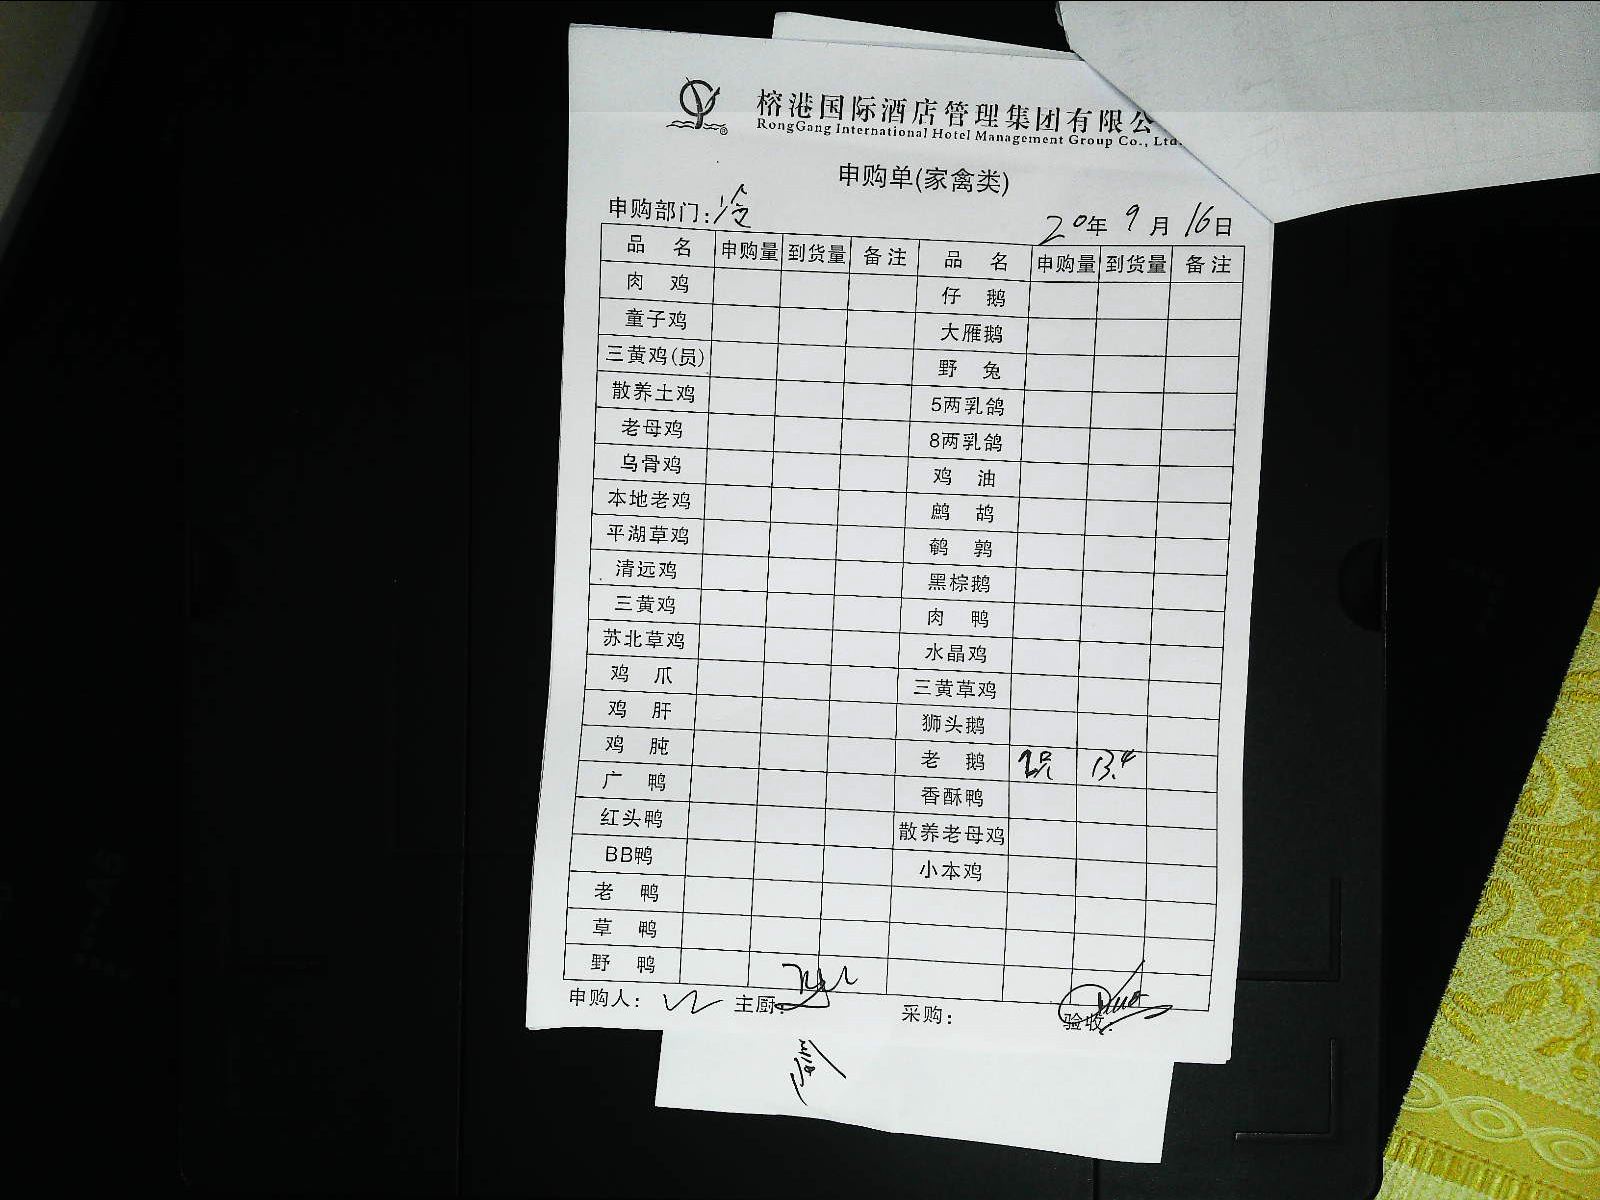 榕港国际酒店管理集团有限公
RongGang International Hotel Management Group Co., Ltd.
申购单(家禽类)
申购部门:冷 20年 9月 16日
品名 申购量 到货量 备注 品名 申购量 到货量 备注
肉鸡 仔鹅
童子鸡 大雁鹅
三黄鸡(员) 野兔
散养土鸡 5两乳鸽
老母鸡 8两乳鸽
乌骨鸡 鸡油
本地老鸡 鹧鸪
平湖草鸡 鹌鹑
清远鸡 黑棕鹅
三黄鸡 肉鸭
苏北草鸡 水晶鸡
鸡爪 三黄草鸡
鸡肝 狮头鹅
鸡肫 老鹅 2只 13.4
广鸭 香酥鸭
红头鸭 散养老母鸡
BB鸭 小本鸡
老鸭
草鸭
野鸭
申购人: 主厨: 采购: 验收: